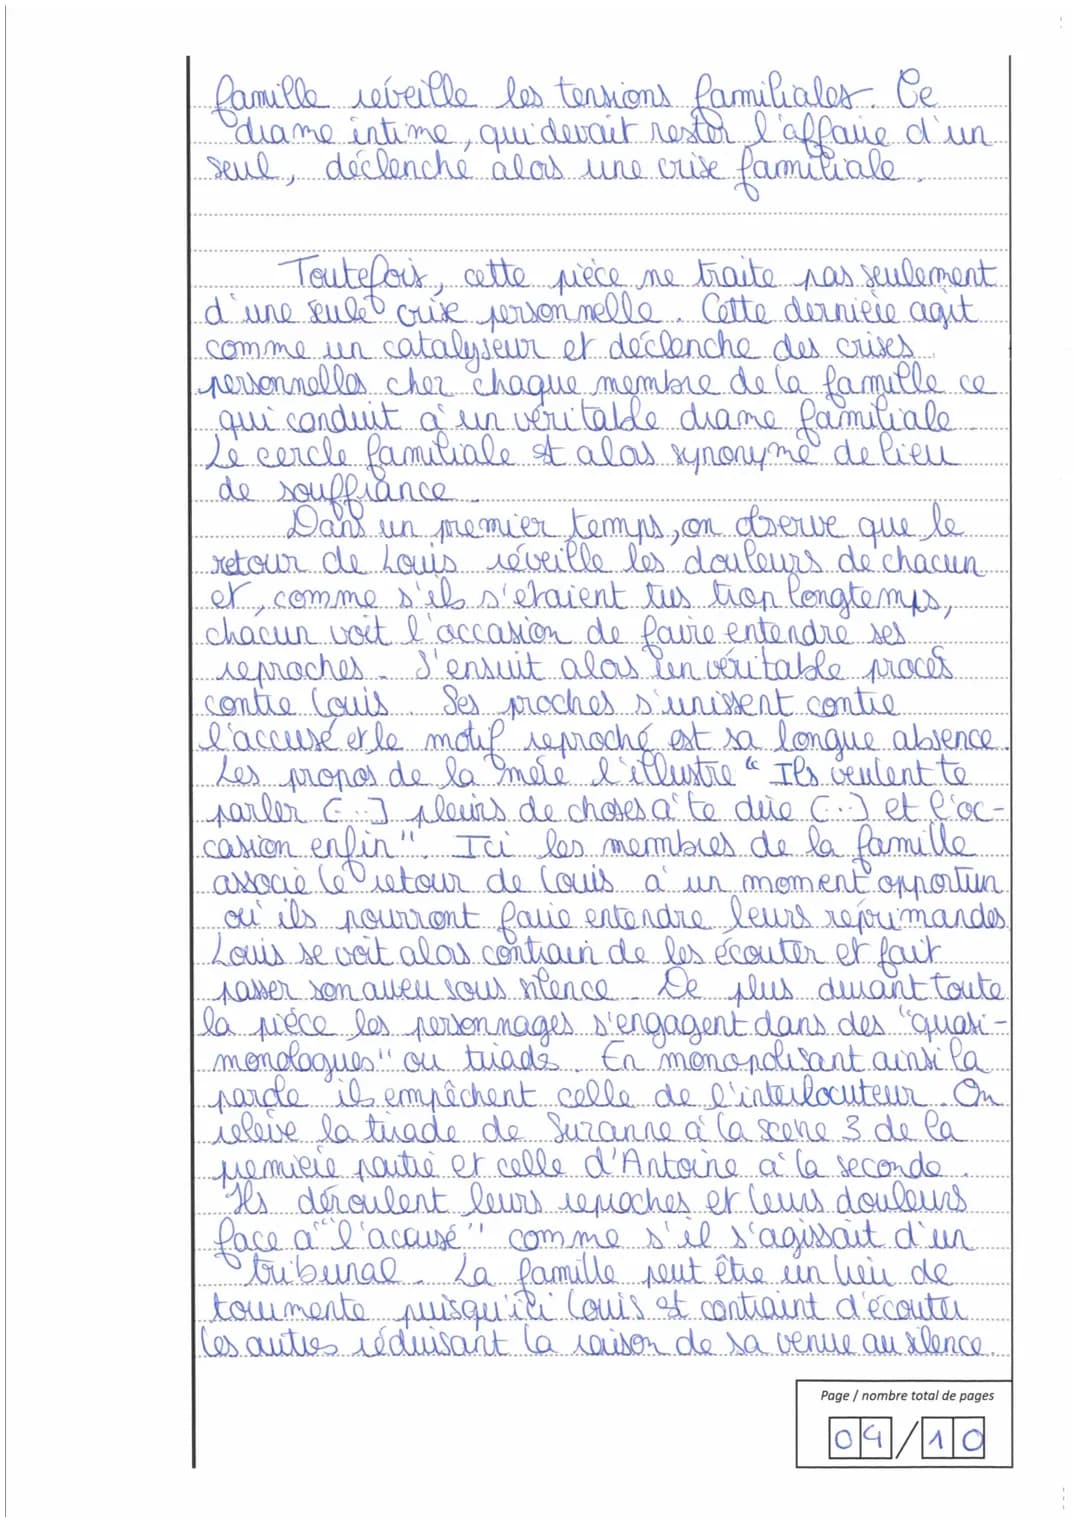 famille réveille les tensions familiales. Ce
drame intime, qui devait rester l'affaire d'un
seul, déclenche alors une crise familiale.
Toutefois, cette pièce ne traite pas seulement
d'une seule crise personnelle. Cette dernière agit
comme un catalyseur et déclenche des crises
personnelles chez chaque membre de la famille ce
qui conduit à un véritable drame familiale.
Le cercle familiale est alors synonyme de lieu
de souffrance.
Dans un premier temps, on observe que le
retour de Louis réveille les douleurs de chacun
et, comme s'ils s'étaient tus trop longtemps,
chacun voit l'occasion de faire entendre ses
reproches. S'ensuit alors un véritable procès
contre Louis. Ses proches s'unissent contre
l'accusé et le motif reproché est sa longue absence.
Les propos de la mère l'illustre "Ils veulent te
parler [...] pleins de choses à te dire [...] et l'oc-
casion enfin". Ici les membres de la famille
associe le retour de Louis à un moment opportun
où ils pourront faire entendre leurs réprimandes
Louis se voit alors contrain de les écouter et fait
passer son aveu sous silence. De plus durant toute
la pièce les personnages s'engagent dans des "quasi-
monologues" ou tirade. En monopolisant ainsi la
parole ils empêchent celle de l'interlocuteur. On
relève la tirade de Suzanne à la scène 3 de la
première partie et celle d'Antoine à la seconde.
Ils déroulent leurs reproches et leurs douleurs
face à "l'accusé" comme s'il s'agissait d'un
tribunal. La famille peut être un lieu de
tourmente puisqu'ici Louis est contraint d'écouter
les autres réduisant la raison de sa venue au silence.
Page / nombre total de pages
04/10